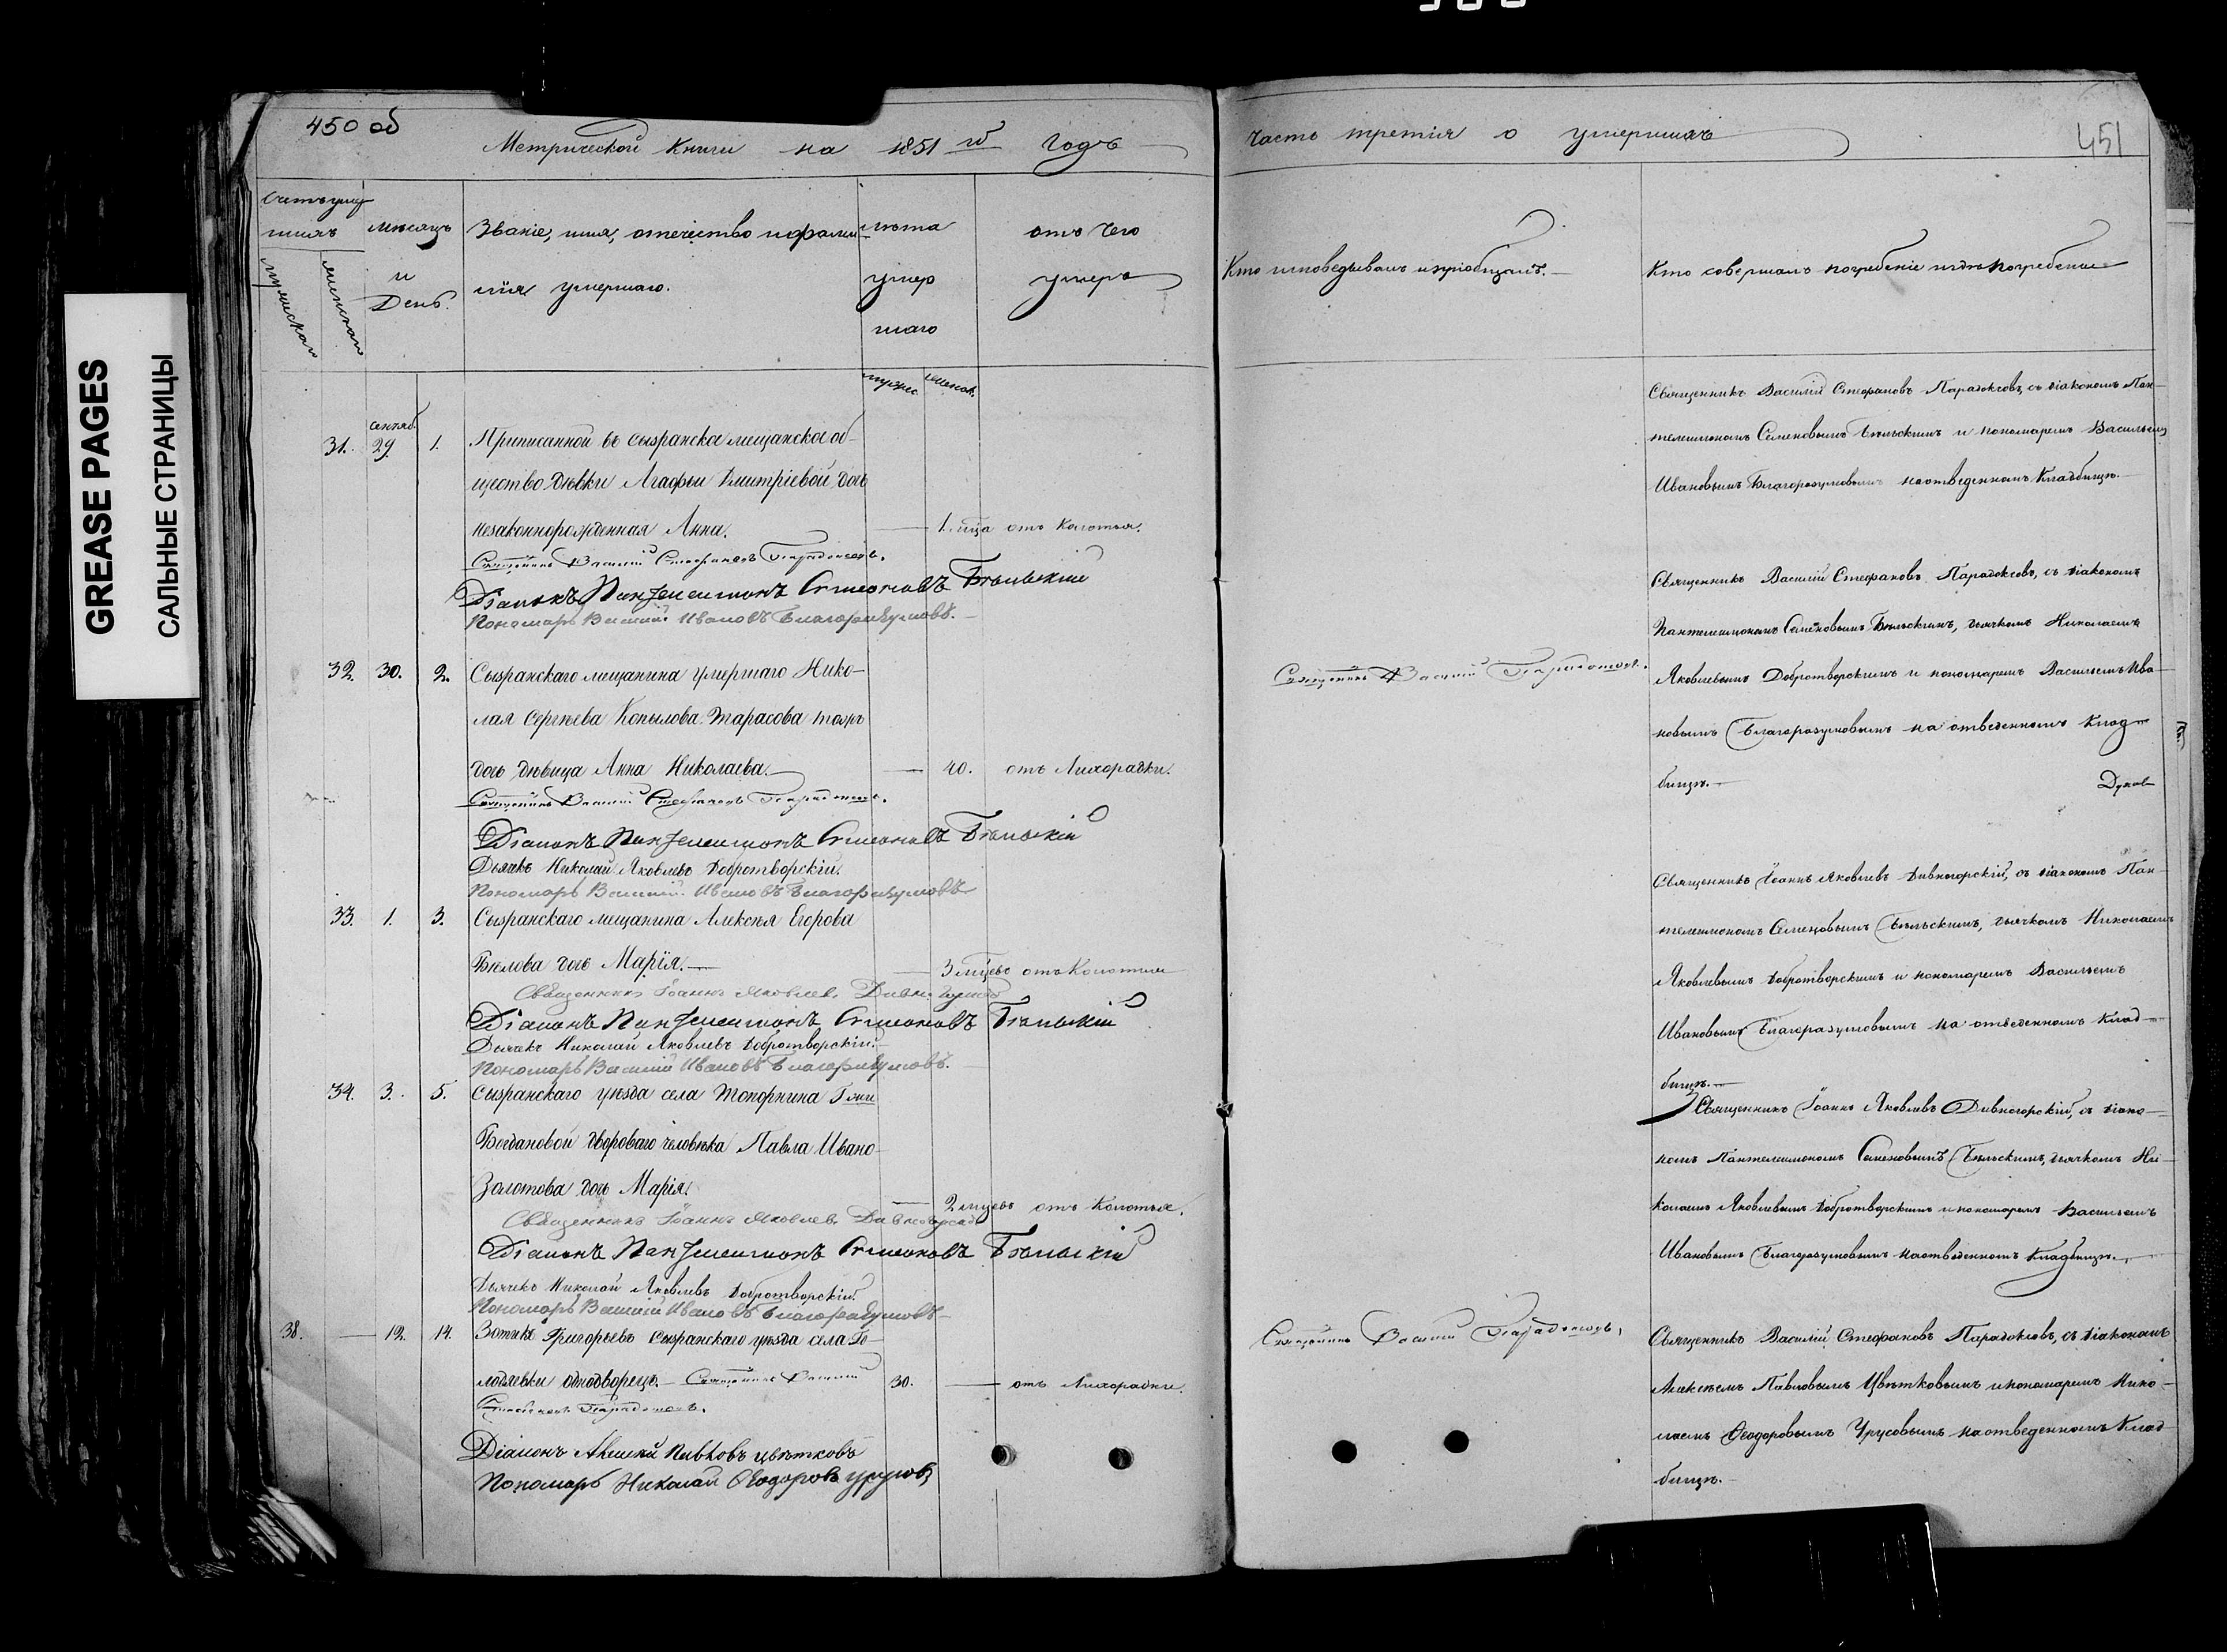 GREASE PAGES
САЛЬНЫЕ СТРАНИЦЫ
450 об
Метрической Книги на 1851 й Годъ
Счетъ умер
шихъ
мужеска
женскаго
мѣсяцъ
и
День.
Званіе, имя, отечество и фами
лія умершаго.
лѣта
умер
шаго
мужес.
женск.
отъ чего
умеръ
31. сентяб. 29. 1. Приписанной въ сызранское мещанское об-
щество дѣвки Агафьи Дмитріевой дочь
незаконнорожденная Анна. — 1. мца отъ Колотья.
Священникъ Василій Стефановъ Парадоксовъ.
Діаконъ Пантелеимонъ Симеоновъ Бѣльскій
Пономарь Василій Ивановъ Благоразумовъ.
32. 30. 2. Сызранскаго мещанина умершаго Нико-
лая Сергѣева Копылова Тарасова тожъ
дочь дѣвица Анна Николаева. — 40. отъ Лихорадки.
Священникъ Василій Стефановъ Парадоксовъ.
Діаконъ Пантелеимонъ Симеоновъ Бѣльскій
Дьячекъ Николай Яковлевъ Добротворскій.
Пономарь Василій Ивановъ Благоразумовъ
33. 1. 3. Сызранскаго мещанина Алексѣя Егорова
Бѣлова дочь Марія. — 3 мцевъ отъ Колотья
Священникъ Іоаннъ Яковлев. Дивногорскій
Діаконъ Пантелеимонъ Симеоновъ Бѣльскій
Дьячекъ Николай Яковлевъ Добротворскій.
Пономарь Василій Ивановъ Благоразумовъ.
34. 3. 5. Сызранскаго уѣзда села Топорнина Гжи
Богдановой двороваго человѣка Павла Ивано
Золотова дочь Марія. — 2 мцевъ отъ Колотья.
Священникъ Іоаннъ Яковлев. Дивногорскій
Діаконъ Пантелеимонъ Симеоновъ Бѣльскій
Дьячекъ Николай Яковлевъ Добротворскій.
Пономарь Василій Ивановъ Благоразумовъ
38. — 12. 14. Зотикъ Григорьевъ Сызранскаго уѣзда села Го-
лодяевки однодворецъ. — Священникъ Василій 30. — отъ Лихорадки.
Стефановъ Парадоксовъ.
Діаконъ Алексей Павловъ Цвѣтковъ
Пономарь Николай Ѳеодоровъ Урусовъ
часть третія о умершихъ
451
Кто исповедывалъ и пріобщалъ. —
Кто совершалъ погребеніе и гдѣ погребены
Священникъ Василій Стефановъ Парадоксовъ, съ діакономъ Пан-
телеимономъ Семеновымъ Бѣльскимъ и пономаремъ Васильемъ
Ивановымъ Благоразумовымъ на отведенномъ Кладбищѣ. —
Священникъ Василій Парадоксовъ.
Священникъ Василій Стефановъ Парадоксовъ, съ діакономъ
Пантелеимономъ Семеновымъ Бѣльскимъ, дьячкомъ Николаемъ
Яковлевымъ Добротворскимъ и пономаремъ Васильемъ Ива-
новымъ Благоразумовымъ на отведенномъ Клад-
бищѣ. —
Священникъ Іоаннъ Яковлевъ Дивногорскій, съ діакономъ Пан-
телеимономъ Семеновымъ Бѣльскимъ, дьячкомъ Николаемъ
Яковлевымъ Добротворскимъ и пономаремъ Васильемъ
Ивановымъ Благоразумовымъ на отведенномъ Клад-
бищѣ. —
Священникъ Іоаннъ Яковлевъ Дивногорскій, съ діако-
номъ Пантелеимономъ Семеновымъ Бѣльскимъ, дьячкомъ Ни-
колаемъ Яковлевымъ Добротворскимъ и пономаремъ Васильемъ
Ивановымъ Благоразумовымъ на отведенномъ Кладбищѣ. —
Священникъ Василій Парадоксовъ,
Священникъ Василій Стефановъ Парадоксовъ, съ діакономъ
Алексѣемъ Павловымъ Цвѣтковымъ и пономаремъ Нико-
лаемъ Ѳеодоровымъ Урусовымъ на отведенномъ Клад
бищѣ. —